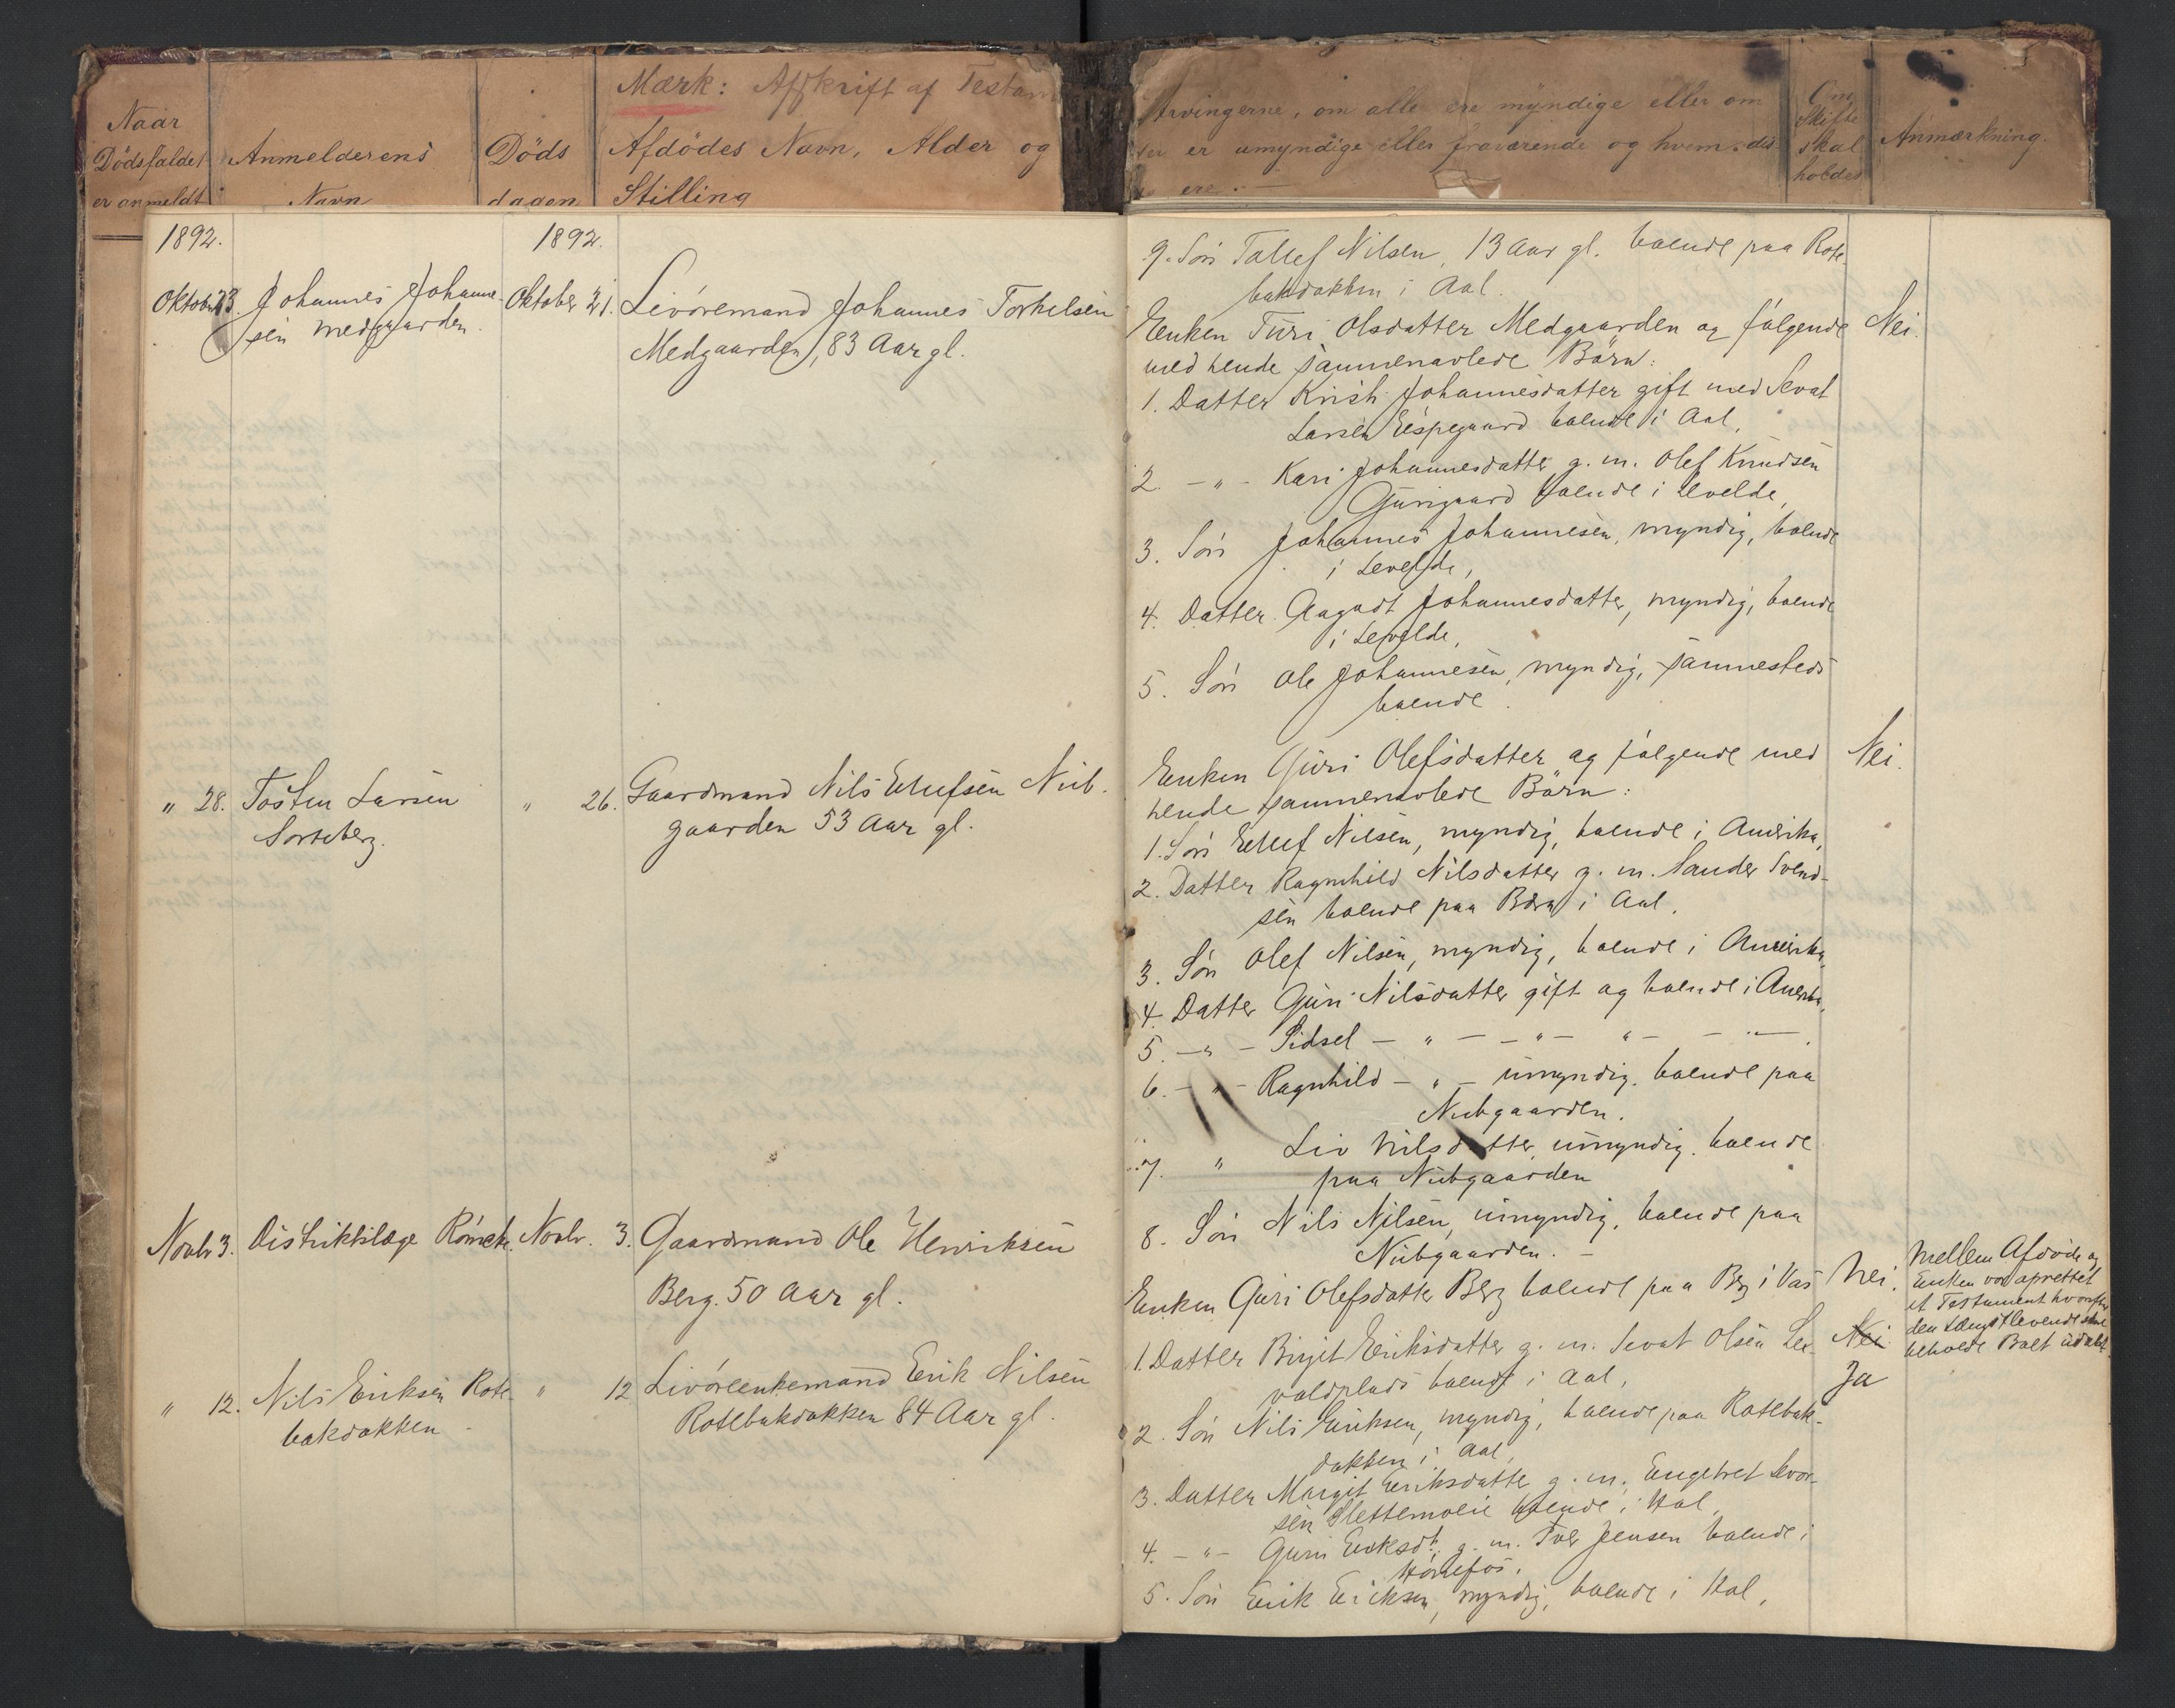 Mærk: Afskrift af
Naar
Dödsfaldet
er anmeldt
Anmelderens
Navn
Döds
dagen
Afdödes Navn, Alder og
Stilling
Arvingerne, om alle ere myndige eller om
er umyndige eller fraværende og hvem
ere.
Om
Skifte
skal
holdes
Anmærkning.
1892.
1892.
Oktober 23. Johannes Johanne-
sen Medgaarden.
Oktober 21.
Livöremand Johannes Torkelsen
Medgaarden, 83 Aar gl.
" 28. Tosten Larsen
Sorteberg.
" 26.
Gaardmand Nils Ellefsen Nub-
gaarden 53 Aar gl.
Novbr 3. Distriktslæge
Novbr. 3.
Gaardmand Ole Henriksen
Berg. 50 Aar gl.
" 12. Nils Eriksen Rote-
bakdokken
" 12
Livörenkemand Erik Nilsen
Rotebakdokken 84 Aar gl.
9. Sön Tollef Nilsen, 13 Aar gl. boende paa Rote-
bakdokken i Aal.
Enken Turi Olsdatter Medgaarden og fölgende
med hende sammenavlede Börn:
Nei.
1. Datter Kristi Johannesdatter gift med Sevat
Larsen Espegaard boende i Aal,
2. - " - Kari Johannesdatter g. m. Olef Knudsen
Gurigaard boende i Levelde,
3. Sön Johannes Johannesen, myndig, boende
i Levelde,
4. Datter Aagodt Johannesdatter, myndig, boende
i Levelde,
5. Sön Ole Johannesen, myndig, sammesteds
boende.
Enken Guri Olefsdatter og fölgende med
hende sammenavlede Börn:
Nei.
1. Sön Ellef Nilsen, myndig, boende i Amerika,
2. Datter Ragnhild Nilsdatter g. m. Sander Svend-
sen boende paa i Aal,
3. Sön Olef Nilsen, myndig, boende i Amerika,
4. Datter Guri Nilsdatter gift og boende i Amerika,
5. - " - Sidsel - " - - " - " - - " -
6. - " - Ragnhild - " - umyndig. boende paa
Nubgaarden.
7. " Liv Nilsdatter, umyndig. boende
paa Nubgaarden
8. Sön Nils Nilsen, umyndig, boende paa
Nubgaarden. -
Enken Guri Olefsdatter Berg boende paa Berg i Vas
Nei.
Mellem Afdöde og
Enken var oprettet
et Testament hvorefter
den Længstlevende skal
beholde Boet udelt.
1. Datter Birgit Eriksdatter g. m. Sevat Olsen Le-
voldplads boende i Aal,
Nei
Ja
2. Sön Nils Eriksen, myndig, boende paa Rotebak-
dokken i Aal,
3. Datter Margit Eriksdatter g. m. Engebret
sen Slettemoeie boende i Hol,
4. - " - Guri Eriksdt. g. m. Iver Jensen boende i
Hönefos.
5. Sön Erik Eriksen, myndig, boende i Hol,